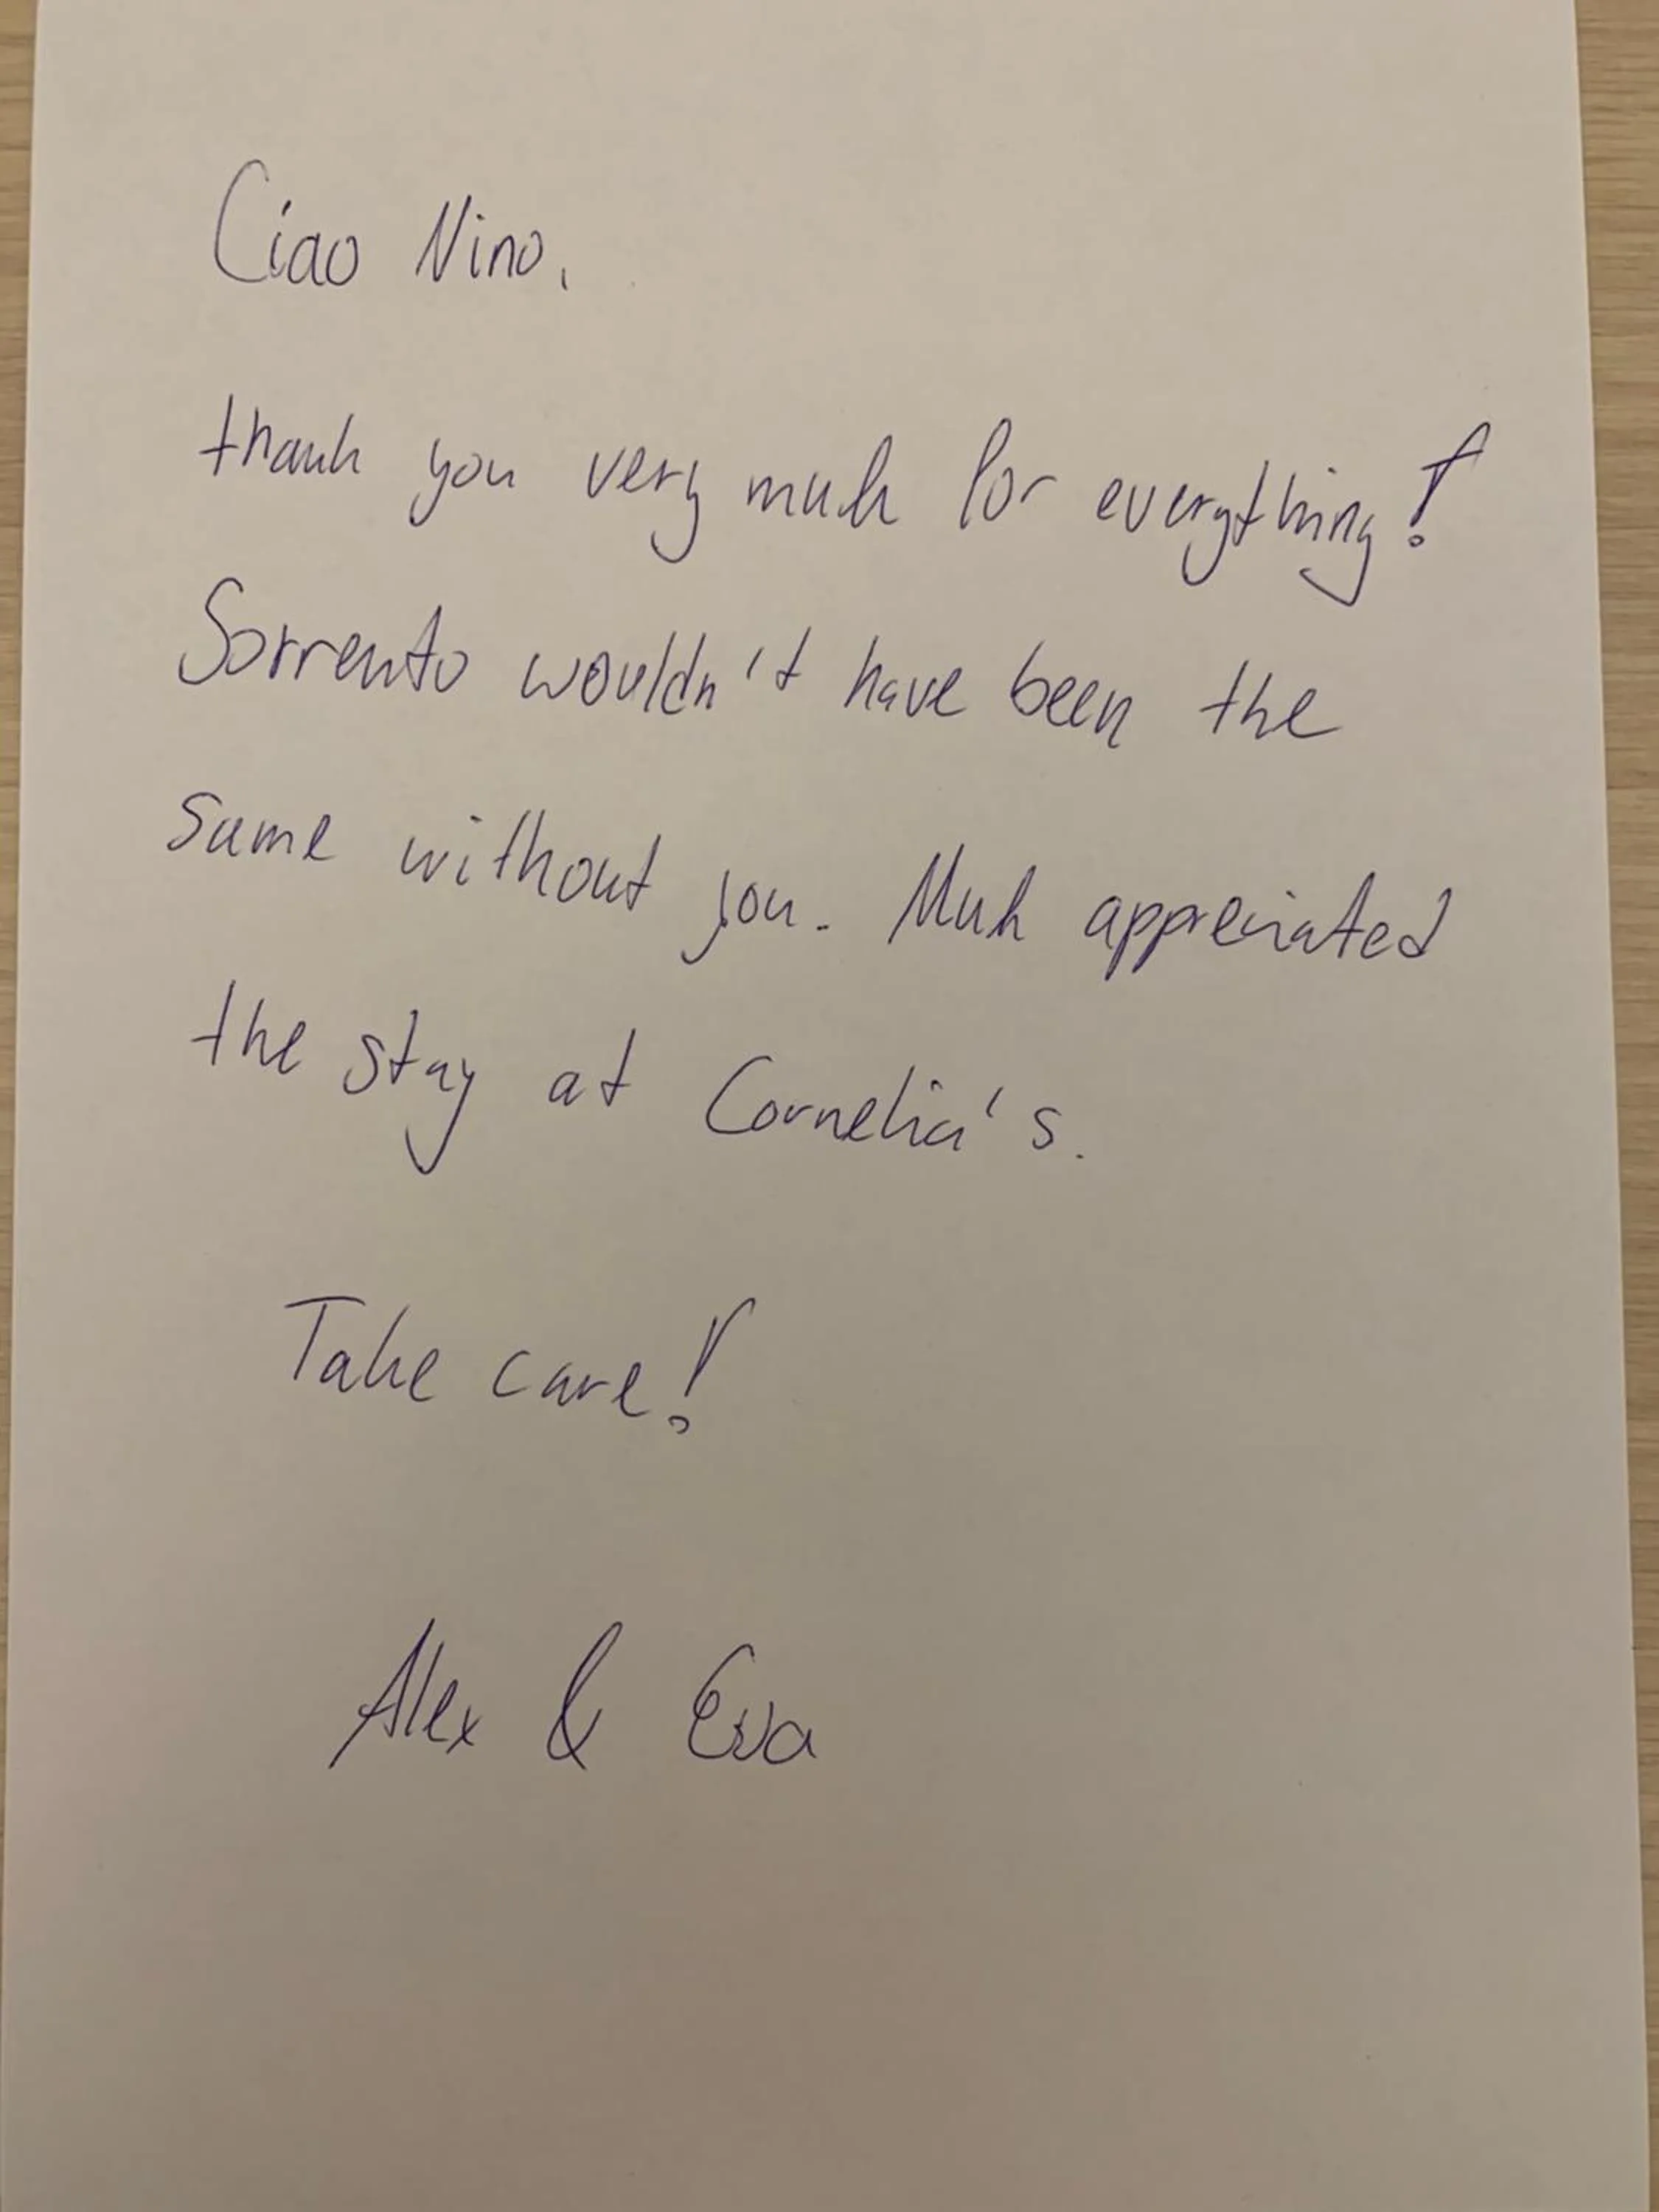 Ciao Nino,
thank you very much for everything!
Sorrento wouldn't have been the
same without you. Much appreciated
the stay at Cornelia's.
Take care!
Alex & Eva